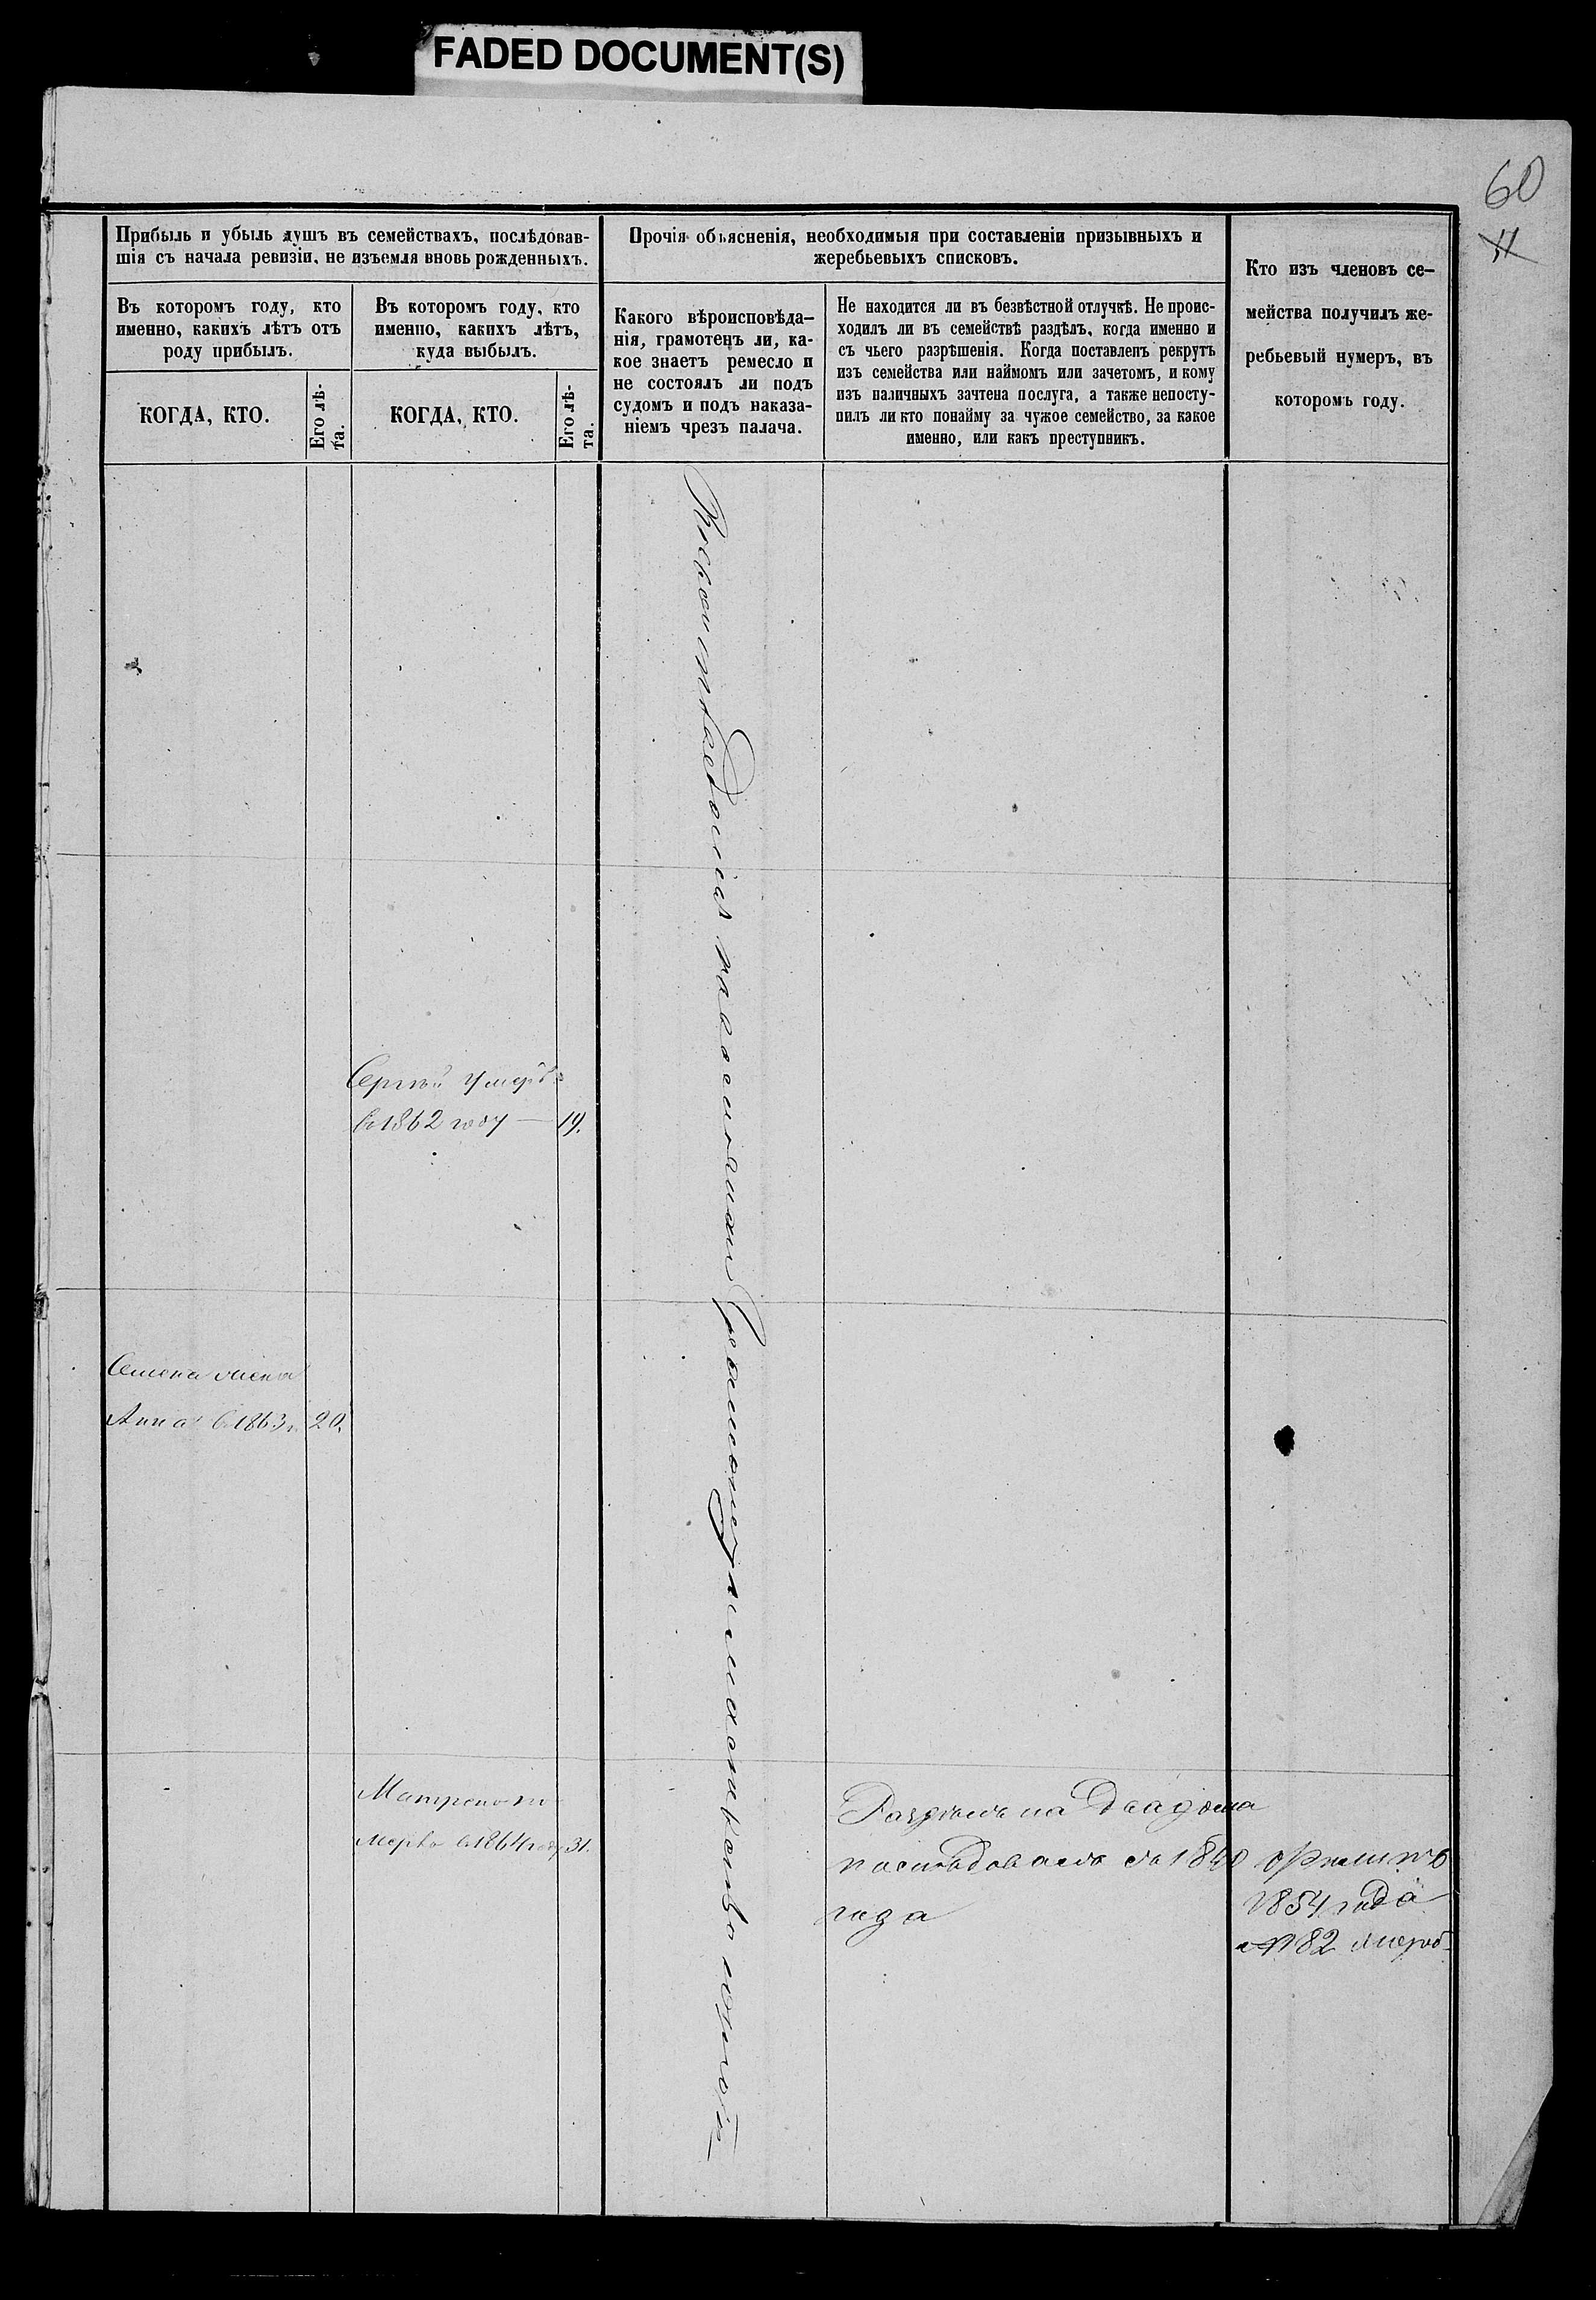 FADED DOCUMENT(S)
60
11
Прибыль и убыль душъ въ семействахъ, послѣдовав-
шія съ начала ревизіи, не изъемля вновь рожденныхъ.
Въ которомъ году, кто
именно, какихъ лѣтъ отъ
роду прибылъ.
КОГДА, КТО.
Его лѣ-
та.
Въ которомъ году, кто
именно, какихъ лѣтъ,
куда выбылъ.
КОГДА, КТО.
Его лѣ-
та.
Прочія объясненія, необходимыя при составленіи призывныхъ и
жеребьевыхъ списковъ.
Какого вѣроисповѣда-
нія, грамотенъ ли, ка-
кое знаетъ ремесло и
не состоялъ ли подъ
судомъ и подъ наказа-
ніемъ чрезъ палача.
Не находится ли въ безвѣстной отлучкѣ. Не проис-
ходилъ ли въ семействѣ раздѣлъ, когда именно и
съ чьего разрѣшенія. Когда поставленъ рекрутъ
изъ семейства или наймомъ или зачетомъ, и кому
изъ наличныхъ зачтена послуга, а также непосту-
пилъ ли кто понайму за чужое семейство, за какое
именно, или какъ преступникъ.
Кто изъ членовъ се-
мейства получилъ же-
ребьевый нумеръ, въ
которомъ году.
Сергѣй умеръ
въ 1862 году — 19.
Семена жена
Анна въ 1863 г. 20.
Матрена у
мерла въ 1864 году 31.
Раздѣлъ на два дома
послѣдовалъ съ 1840
года
1854 года
№ 82